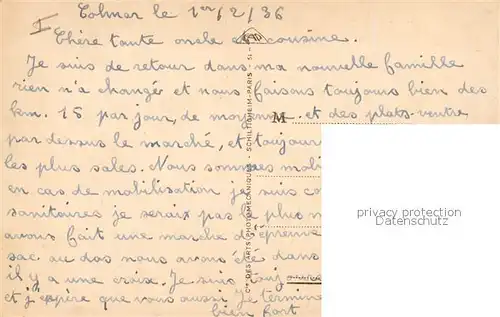 I
Colmar le 1er/2/36
Chère tante oncle et cousine.
Je suis de retour dans ma nouvelle famille
rien n'a changé et nous faisons toujours bien des
km. 15 par jour, de moyenne et des plats-ventre
M
par dessus le marché, et toujours
les plus sales. Nous sommes mobi
en cas de mobilisation je suis co
sanitaires je serais pas la plus m
avons fait une marche d'épreuve
sac au dos nous avons été dans
il y a une croix. Je suis touj
et j'espère que vous aussi. Je termine
bien fort
Cie DES ARTS PHOTOMECANIQUES - SCHILTIGHEIM-PARIS - 51 -
privacy protection
Datenschutz